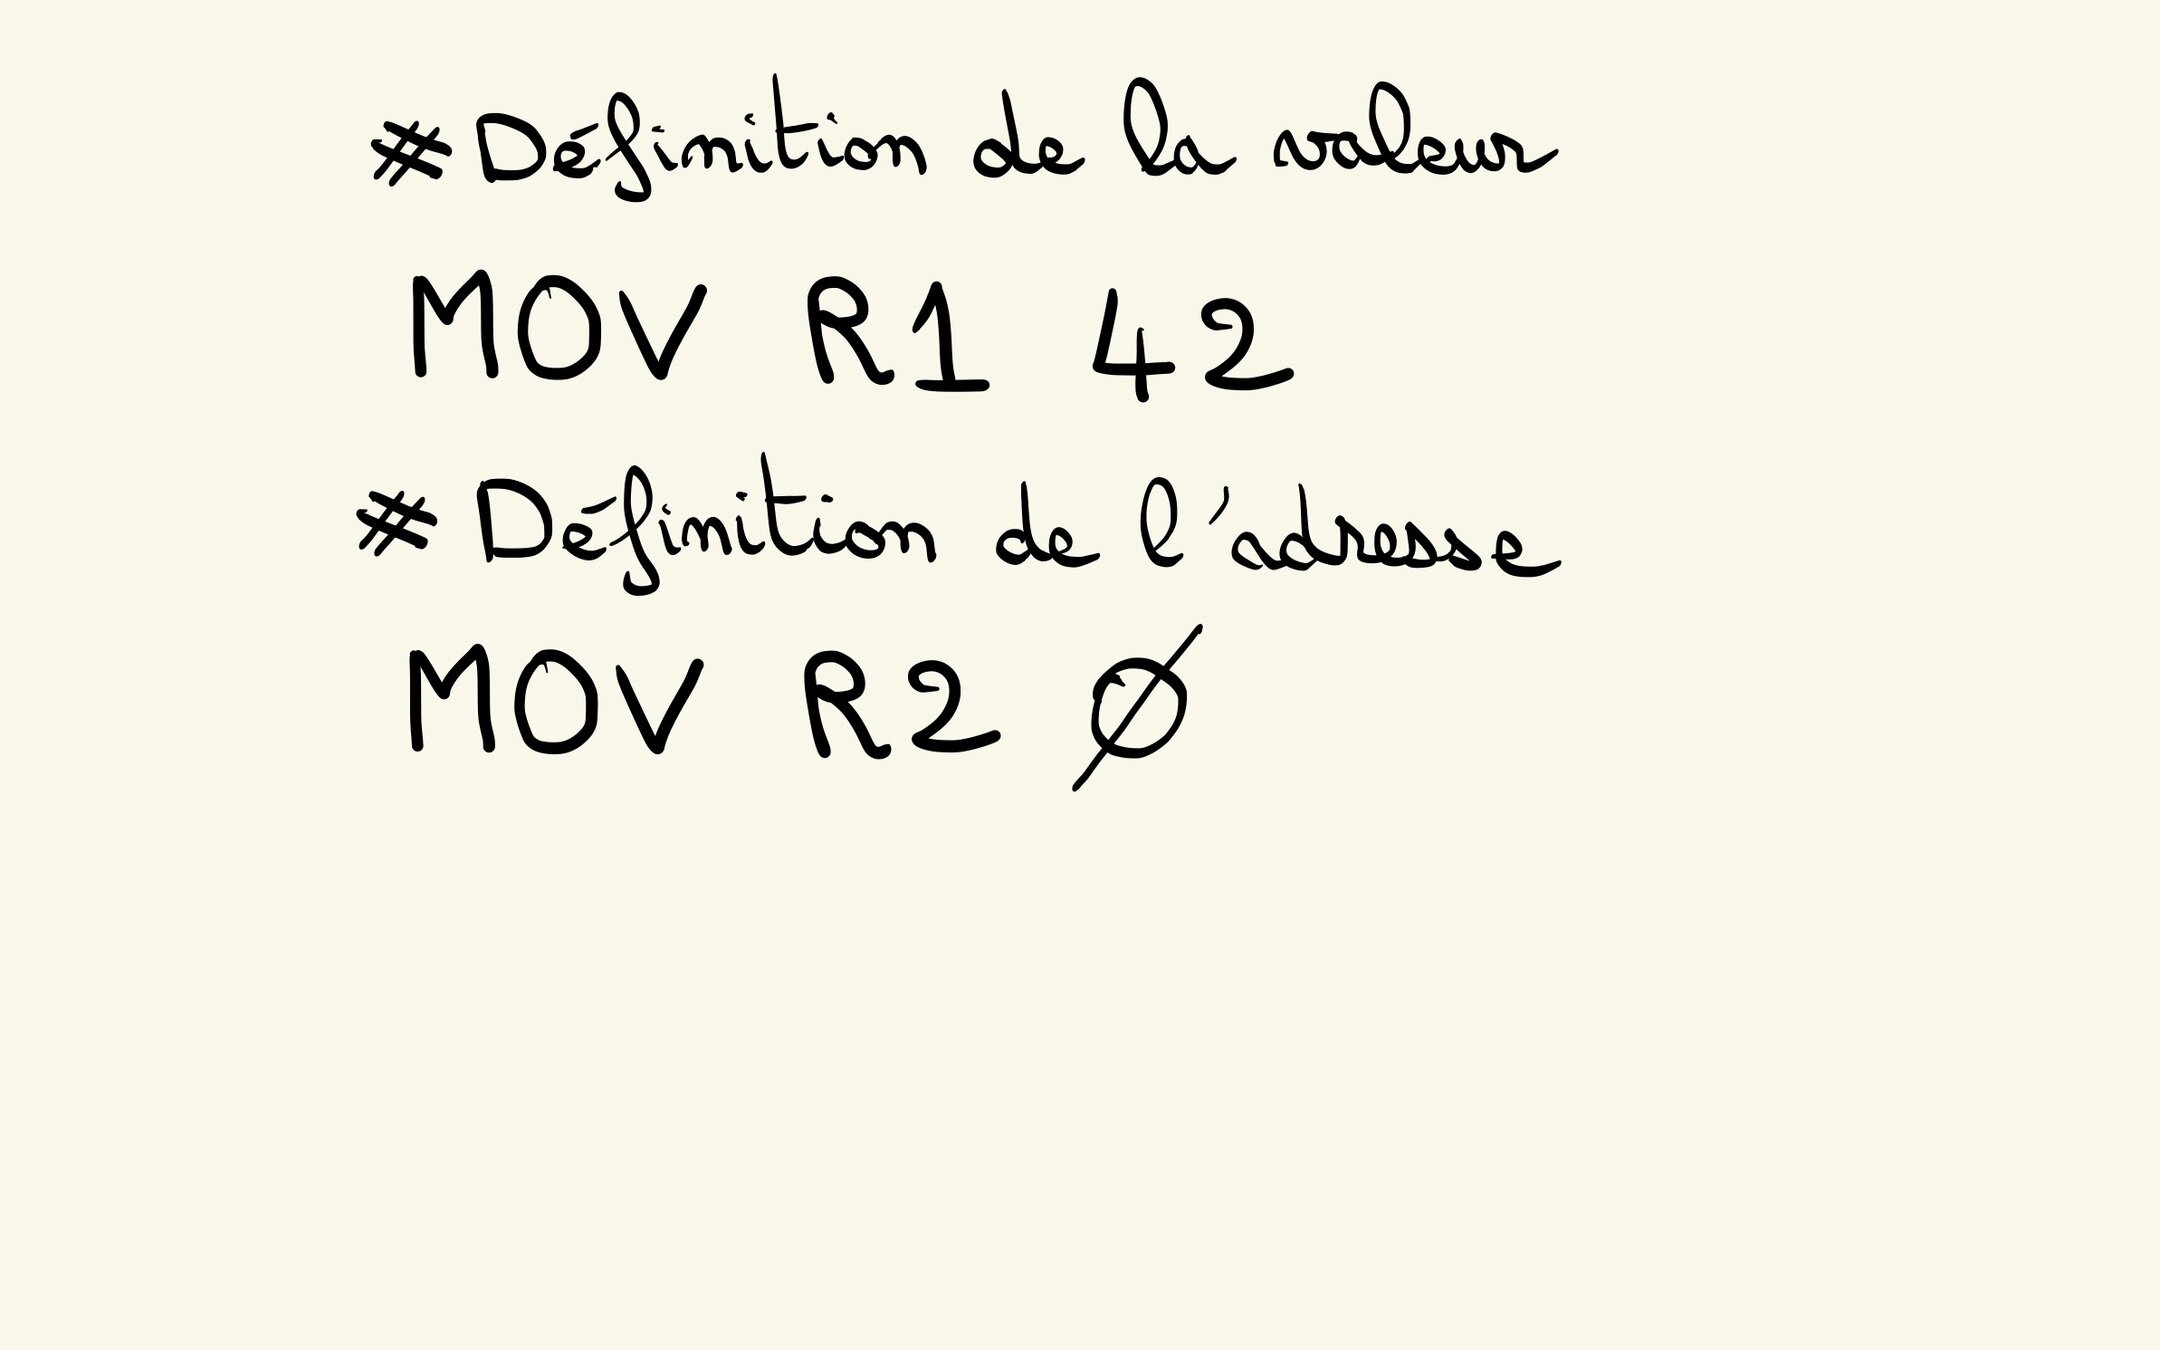 # Définition de la valeur
MOV R1 42
# Définition de l'adresse
MOV R2 0